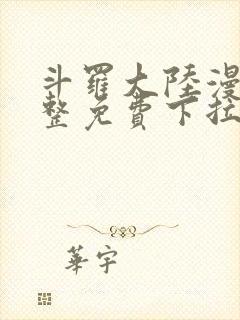 斗羅大陸漫
整免費下拉
華宇